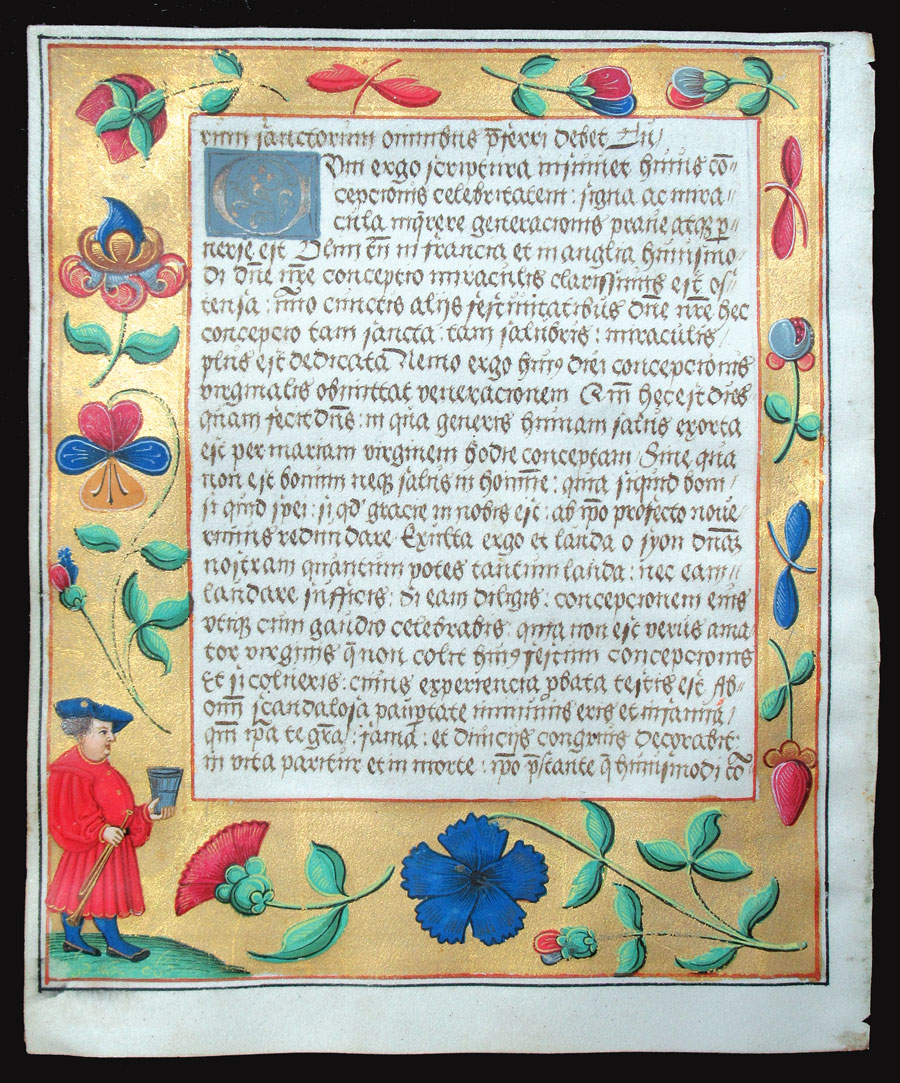 rum sanctorum omnibus p̄ferri debet Du/
Cum ergo scriptura inſinuet huius cō⸗
cepcionis celebritatem : signa ac mira⸗
cula inq̄rere generacionis praue atq; p̱⸗
uerse est Demū tn̄ in francia et in anglia huiusmo⸗
di dn̄e nr̄e concepcio miraculis clarissimis est os⸗
tensa : īmo cunctis alijs festiuitatibus dn̄e nr̄e hec
concepcio tam sancta : tam salubris : miraculis
plus est dedicata Nemo ergo huiꝰ diei concepcionis
virginalis obmittat veneracionem Qm̄ hec est dies
quam fecit dn̄s : in qua generis humani salus exorta
est per mariam virginem hodie conceptam Sine qua
non est bonum neq; salus in homine : quia siquid boni
si quid spei : si qd̓ gracie in nobis est : ab ip̄o profecto noue⸗
rimus redundare Exulta ergo et lauda o syon dn̄am
nostram quantum potes tantum lauda : nec eam
laudare sufficis : Si eam diligis : concepcionem eius
vtiq; cum gaudio celebrabis : quia non est verus ama
tor virginis q̄ non colit huiꝰ festum concepcionis
Et si colueris : cuius experiencia p̱bata testis est Ab⸗
omī scandalosa paup̱tate immunis eris et infamia /
qm̄ ip̄a te gr̄a : fama : et diuicijs congruis decorabit
in vita pariter et in morte : ip̄o p̄stante q̄ huiusmodi cō⸗